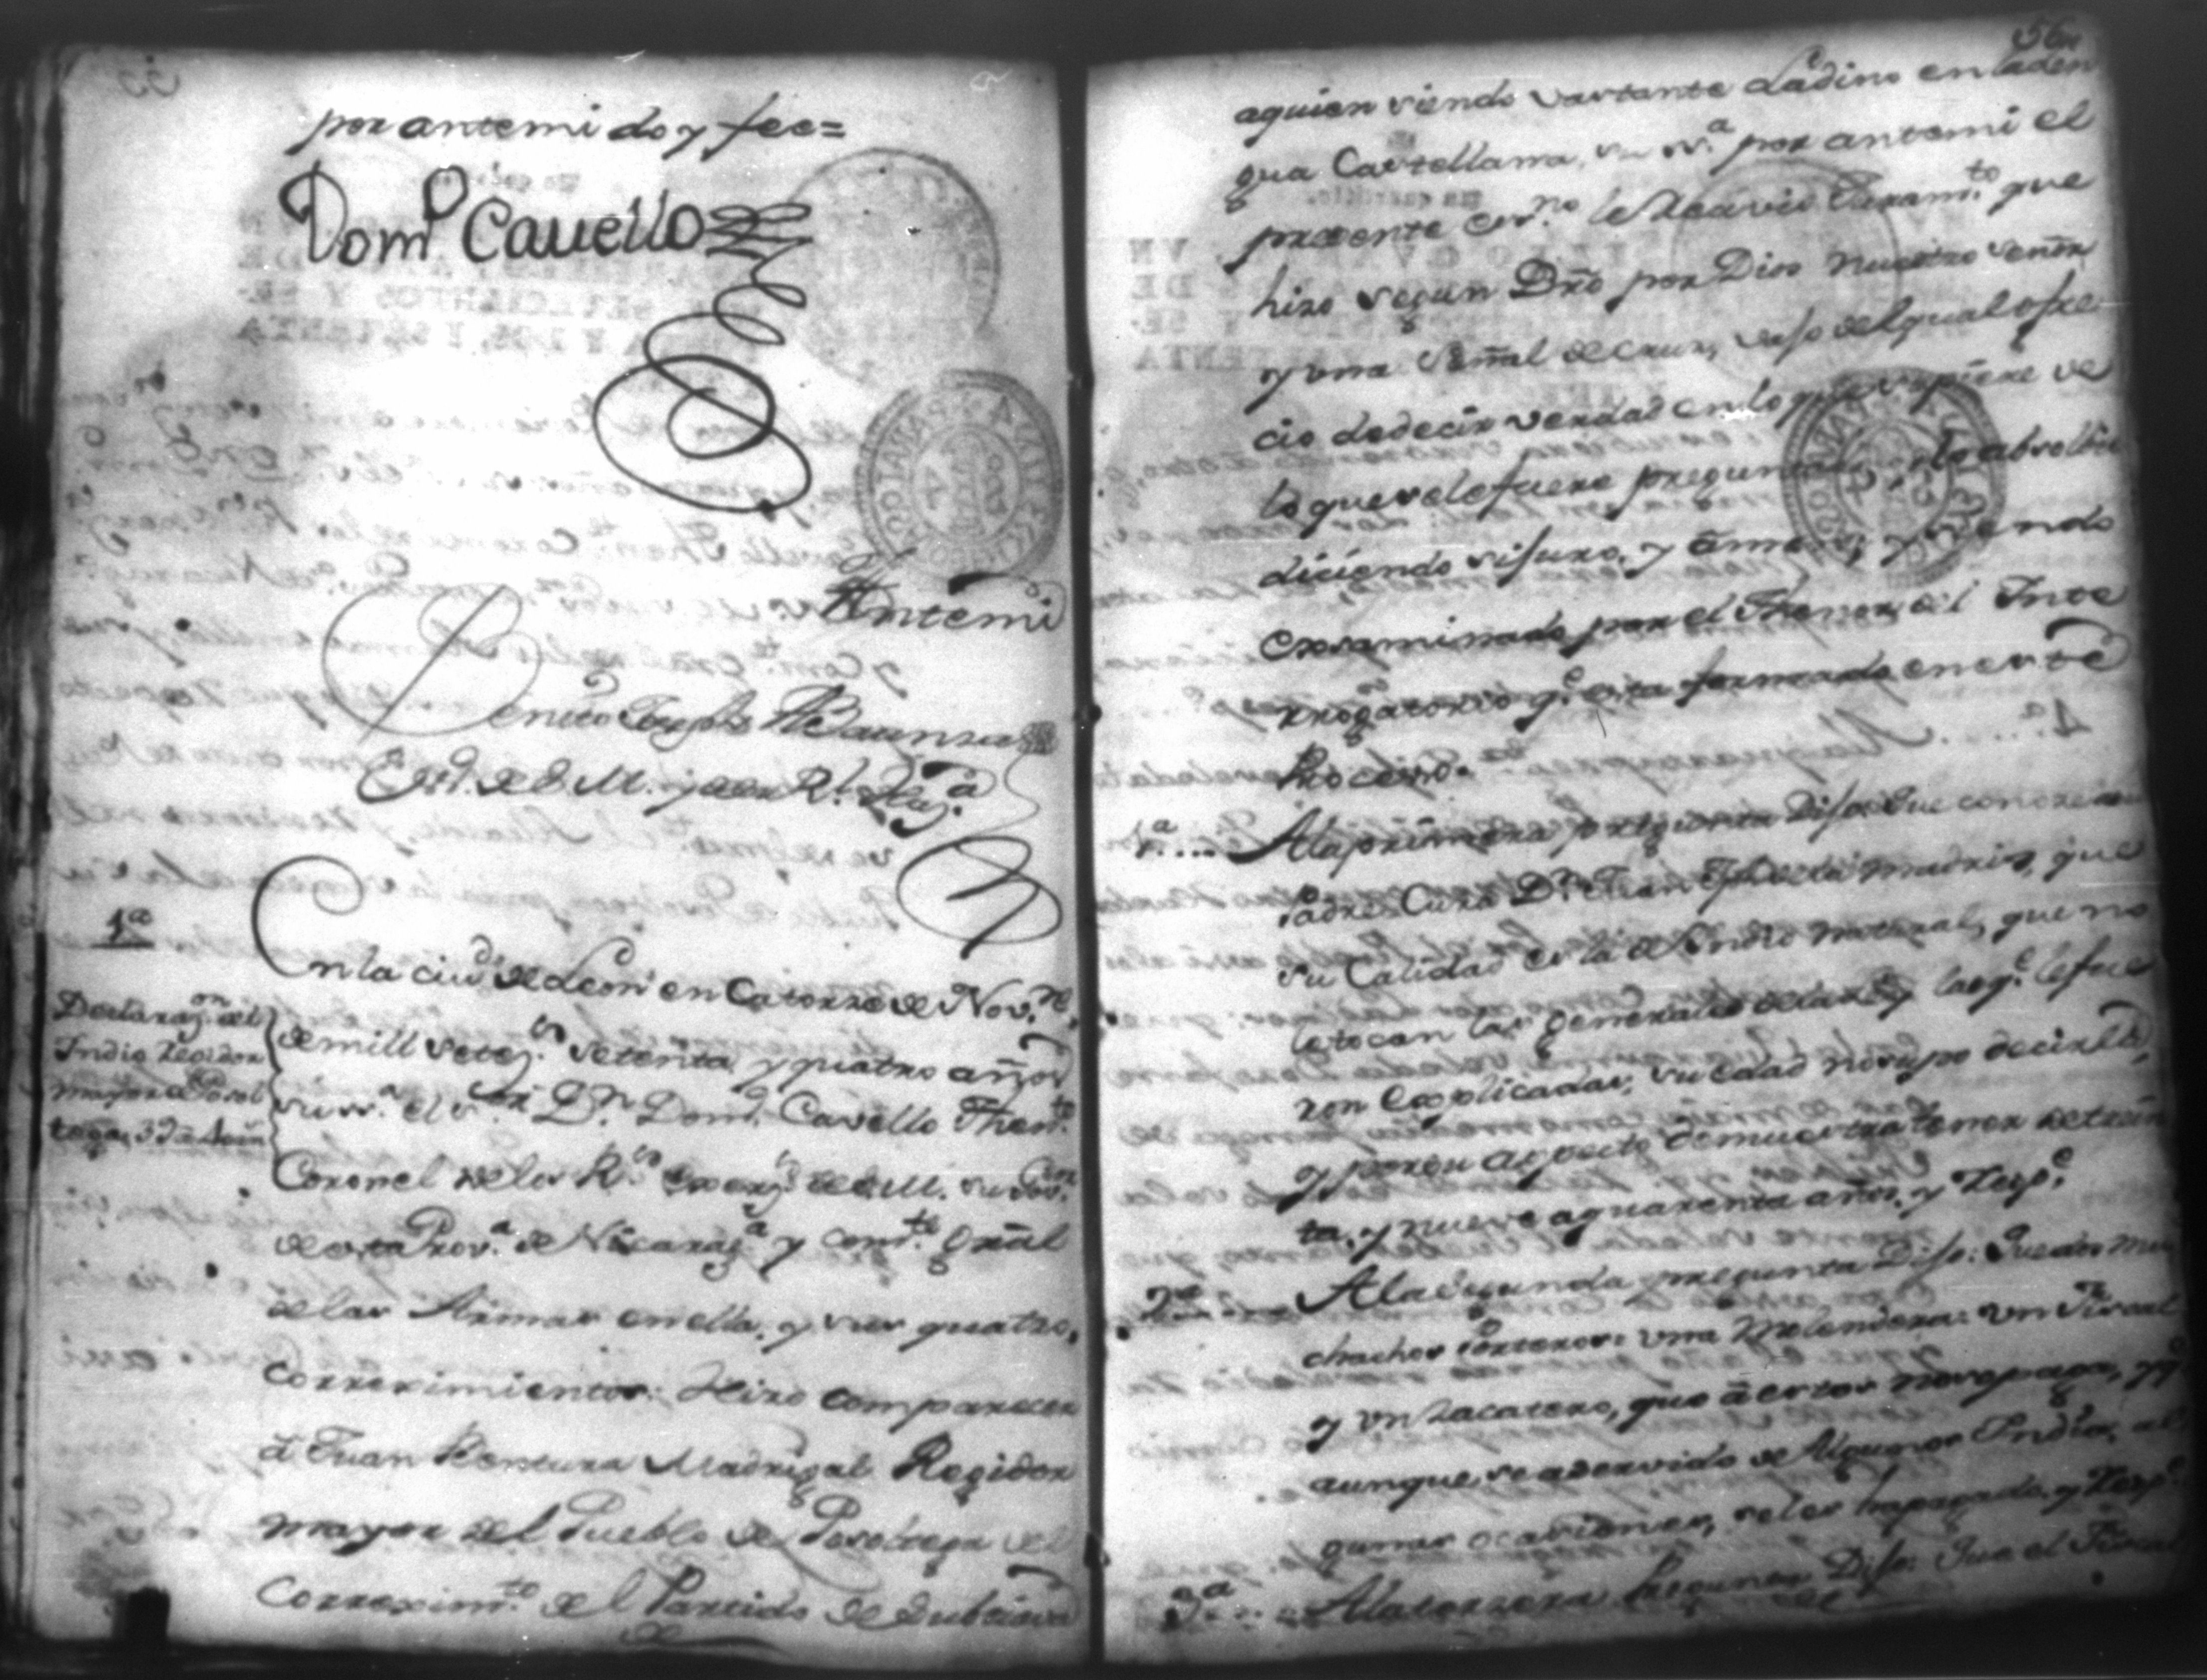 por antemi doy fee=
Domº Cavello
Antemi
Benito Joseph
Esnº. de S. M. R.l Haz.ª
1ª
Declarazon. del
Indio Regidor
mayor de Posol
tega, 39 a 40 añ
En la ciud. de Leon en Catorze de Nov.re
de mill setez.s setenta y quatro años
su ss.ª el s.or Dn. Domº. Cavello Then.te
Coronel de los R.s Exerz.s de S. M. su Gov.or
de esta Prov.ª de Nicarag.ª y Com.te Gral
de las Armas en ella, y sus quatro,
Correximientos: Hizo comparecer
â Juan Ventura Madrigal Regidor
mayor del Pueblo de Posoltega del
Correxim.to de el Partido de Subtiava
56
aquien siendo vastante Ladino en la len
gua Castellana, su ss.ª por antemi el
presente esn.no le Recivio Juram.to que
hizo segun Dro por Dios Nuestro señor
y una Señal de Cruz, vaso del qual ofre
cio de decir verdad en lo que supiere de
lo que se le fuere preguntado, y lo absolbio
diciendo si Juro, y amen, y siendo
exsaminado por el Thenor del Inte
rrogatorio q.e esta formado en este
Proceso.
1ª.... A la primera pregunta Dijo: Que conoce a
Padre Cura Dn. Juan Jph de la Madriz, que
su Calidad es la de Indio Natural, que no
le tocan las generales de la Ley q.e le fue
ron explicadas, su edad no supo decirla,
y por su aspecto demuestra tener de trein
ta, y nueve a quarenta años, y Resp.e
2ª.... A la Segunda pregunta Dijo: Que dos mu
chachos Porteros: una Molendera: un Fiscal
y un Zacatero, que â estos no se pagan, y q.e
aunque se a servido de Algunos Indios, al
gunas ocaciones, se les ha pagado, y Resp.e
3ª.... A la tercera Pregunta Dijo: Que el Fiscal